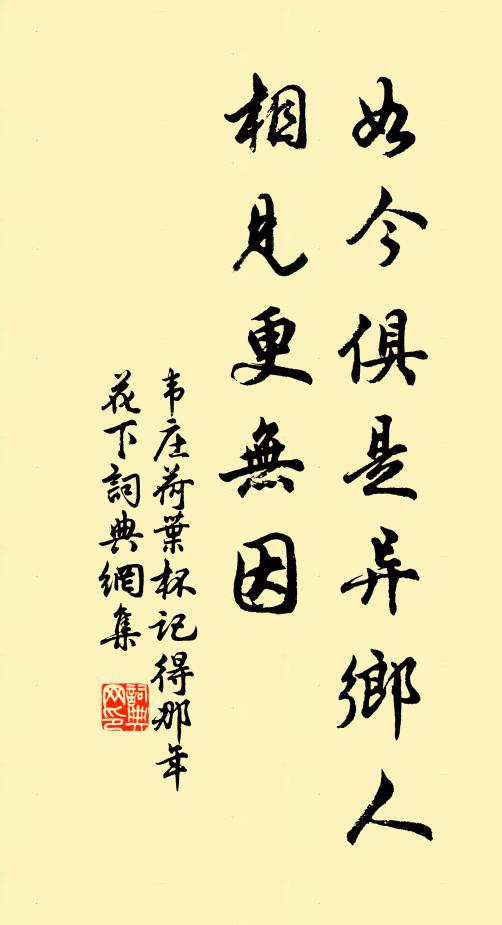 如今俱是异鄉人
相見更無因
韦庄荷葉杯记得那年
花下詞典網集
詞典网印